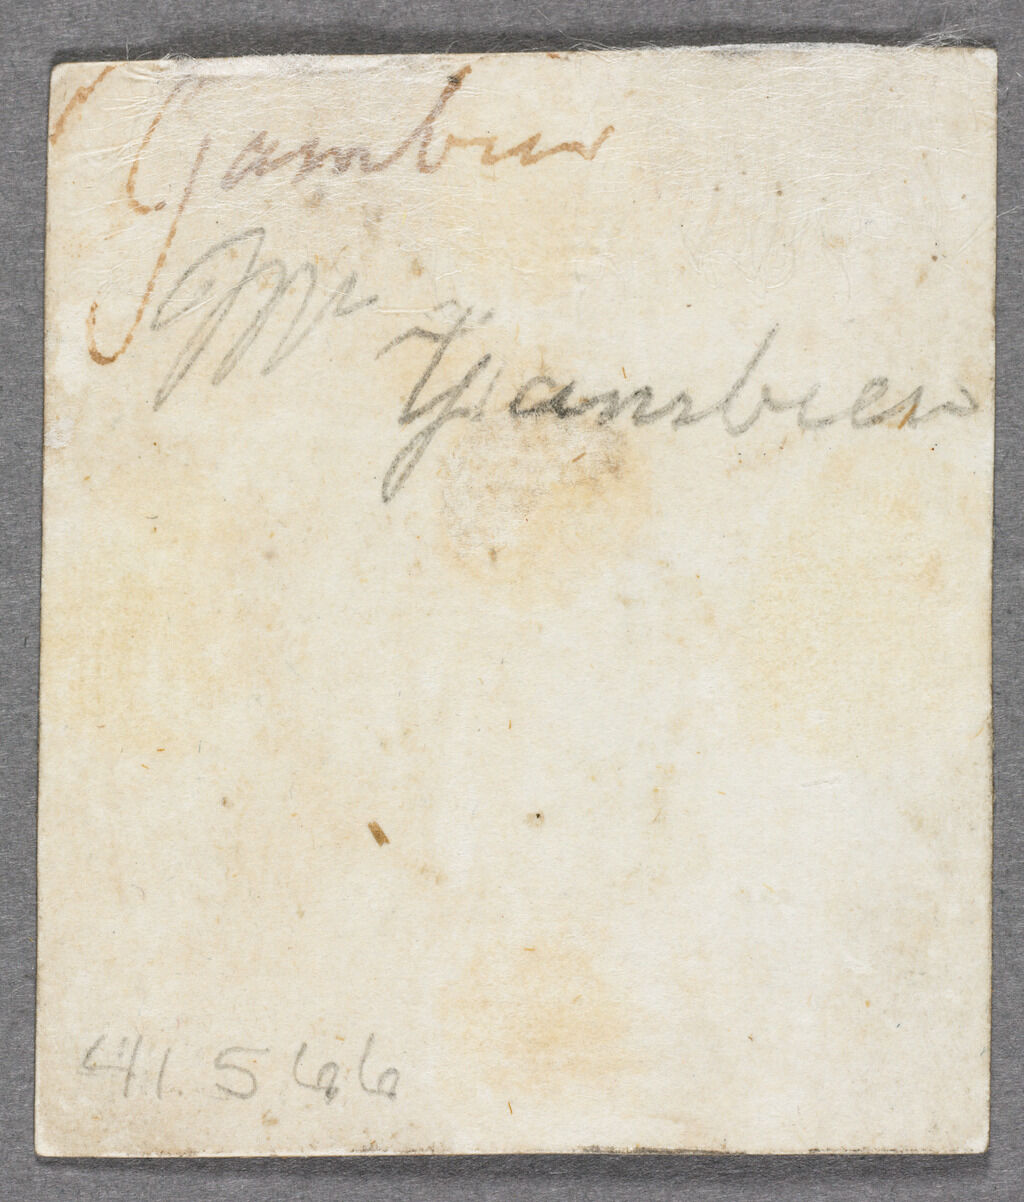 Gambier
Mr
Gambier
41.566